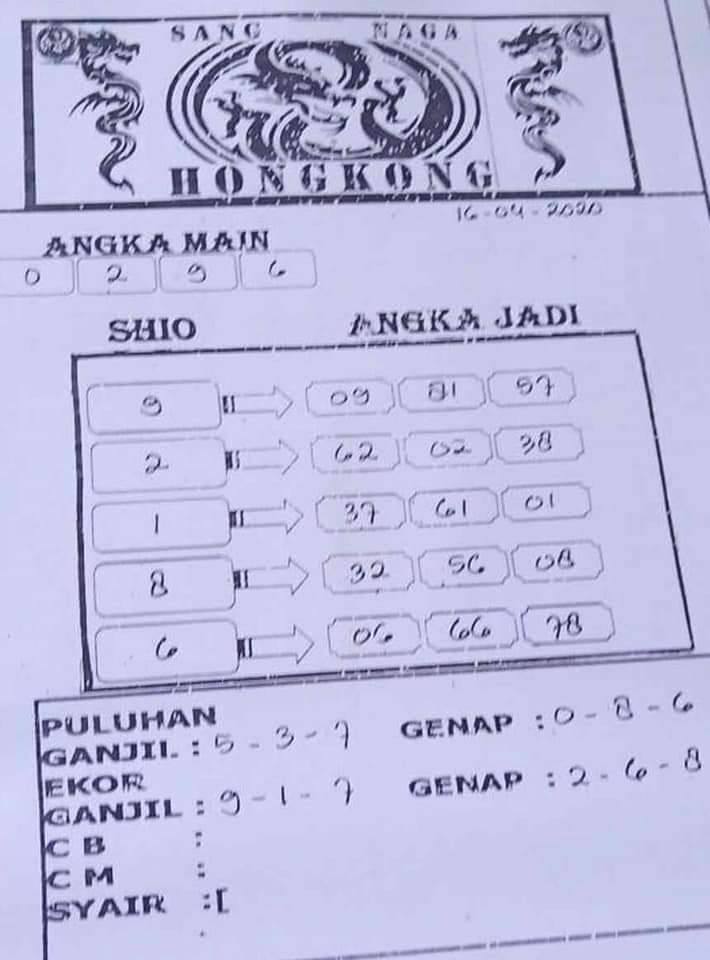 SANG NAGA
HONGKONG
16-04-2020
ANGKA MAIN
0 2 9 6
SHIO ANGKA JADI
9 09 81 57
2 62 02 38
1 37 61 01
8 32 56 08
6 06 66 78
PULUHAN
GANJIL : 5 - 3 - 7 GENAP : 0 - 8 - 6
EKOR
GANJIL : 9 - 1 - 7 GENAP : 2 - 6 - 8
C B :
C M :
SYAIR :[